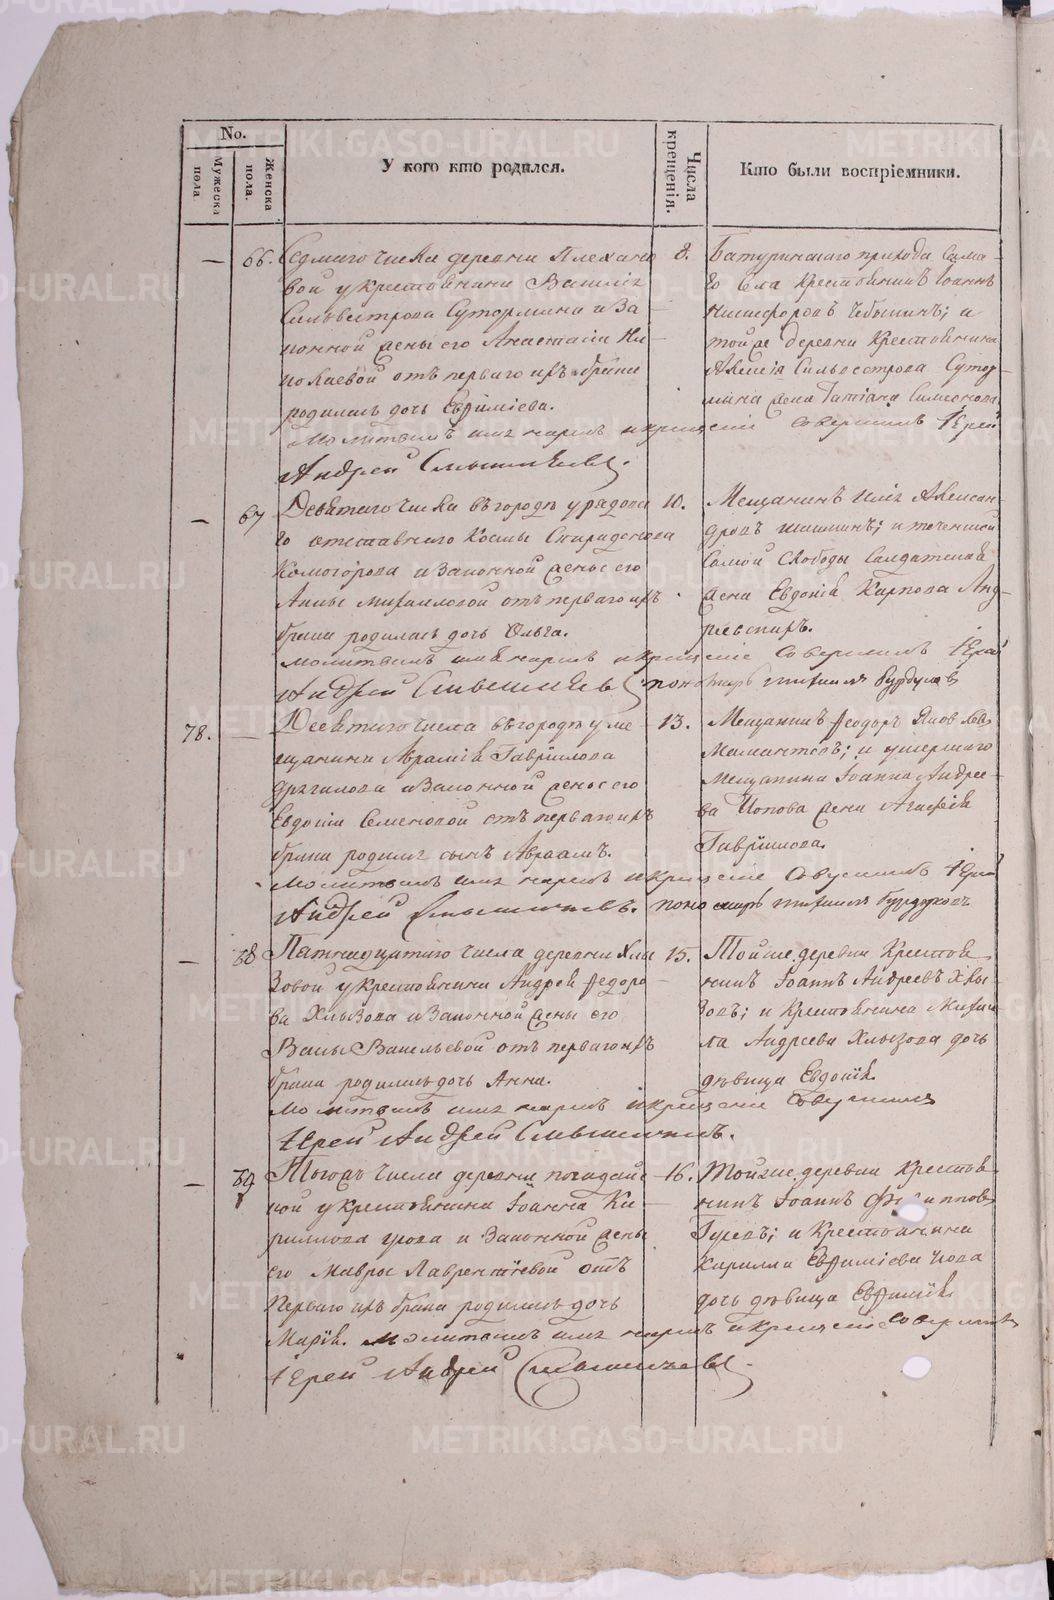 No.
Мужеска пола
Женска пола.
У кого кто родился.
Числа крещенія.
Кто были воспріемники.
— 66. Седмаго числа деревни Плехано
вой у крестьянина Василія
Сильвестрова Сутормина и За
конной жены его Анастасіи Ни
колаевой отъ перваго ихъ брака
родилась дочь Евѳиміева.
8. Батуринскаго прихода сама
го села крестьянинъ Іоаннъ
Никифоровъ Чебыкинъ; и
той же деревни крестьянина
Алексія Сильвестрова Сутор
мина жена Татіана Симеонова
Молитвилъ имя нарекъ и крещеніе совершилъ Іерей
Андрей Смышляевъ.
— 67 Девятаго числа въ городѣ у рядова
го отставнаго Космы Спиридонова
Комогорова и Законной жены его
Анны Михаиловой отъ перваго ихъ
брака родилась дочь Ольга.
10. Мещанинъ Илія Алексан
дровъ Шишкинъ; и
самой Слободы Солдатская
жена Евдокія Карпова Анд
реевскихъ.
молитвилъ имя нарекъ и крещеніе совершилъ Іерей
Андрей Смышляевъ пономарь Михаилъ
78. — Девятаго числа въ городѣ у ме
щанина Аврамія Гаврилова
и Законной жены его
Евдокіи Семеновой отъ перваго ихъ
брака родился сынъ Авраамъ.
13. Мещанинъ Ѳеодоръ Яковлевъ
Мамонтовъ; и умершаго
мещанина Іоанна Андрее
ва Попова жена Агафія
Гаврилова.
Молитвилъ имя нарекъ и крещеніе Іерей
Андрей Смышляевъ. пономарь Михаилъ
— 68 Пятнадцатаго числа деревни Хлы
зовой у крестьянина Андрея Ѳедоро
ва Хлызова и Законной жены его
Васильевой отъ перваго ихъ
брака родилась дочь Анна.
15. Той же деревни Крестья
нинъ Іоаннъ Андреевъ Хлы
зовъ; и крестьянина Михаи
ла Андреева Хлызова дочь
дѣвица Евдокія.
Молитвилъ имя нарекъ и крещеніе
Іерей Андрей Смышляевъ.
— 69 Тогожъ числа деревни
ной у крестьянина Іоанна Ки
риллова и Законной жены
его Мавры Лаврентіевой отъ
перваго ихъ брака родилась дочь
Марія. молитвилъ имя нарекъ и крещеніе совершилъ
16. Той же деревни крестья
нинъ Іоаннъ
Гуревъ; и Крестьянина
Кирилла Евѳиміева
дочь дѣвица Евѳимія.
Іерей Андрей Смышляевъ.
METRIKI.GASO-URAL.RU